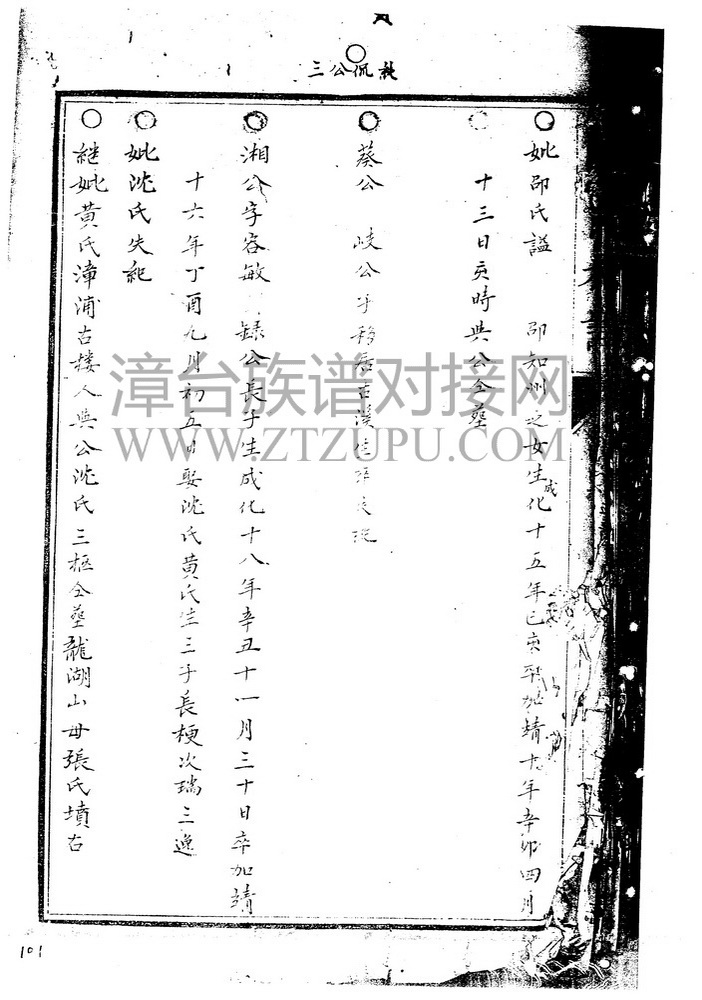 三公侃
妣邵氏謚 邵知州之女生成化十五年己亥卒加靖十年辛卯四月
十三日亥時與公仝塟
葵公 岐公子移居古溪生卒
湘公字容敏 録公長子生成化十八年辛丑十一月三十日卒加靖
十六年丁酉九月初五日娶沈氏黄氏生三子長梗次瑞三逸
妣沈氏失紀
継妣黄氏漳浦古楼人與公沈氏三柩仝塟龍湖山母張氏墳右
漳台族谱对接网
WWW.ZTZUPU.COM
101